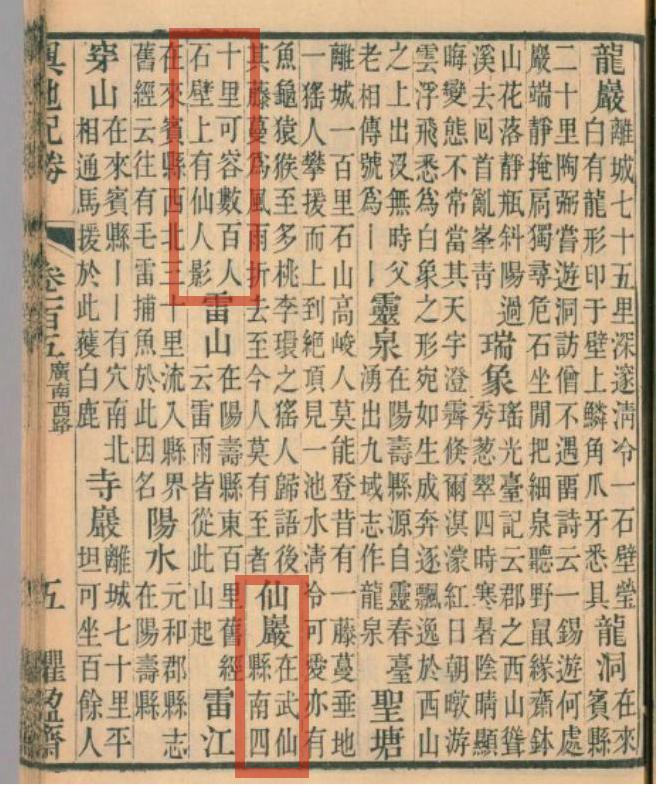 龍巖
離城七十五里深邃清泠一石壁瑩
白有龍形印于壁上鱗角爪牙悉具
龍洞
在來
賓縣
二十里陶弼嘗遊洞訪僧不遇畱詩云一錫遊何處
巖端靜掩扃獨尋危石坐閒把細泉聽野鼠緣齋鉢
山花落靜瓶斜陽過
溪去回首亂峯靑
瑞象
瑤光臺記云郡之西山聳
秀葱翠四時寒暑陰晴顯
晦變態不常當其天宇澄霽倐爾溟濛紅日朝暾游
雲浮飛悉爲白象之形宛如生成奔逐飄逸於西山
之上出没無時父
老相傳號爲丨丨
靈泉
在陽壽縣源自靈春臺
湧出九域志作龍泉
聖塘
離城一百里石山高峻人莫能登昔有一藤蔓垂地
一猺人攀援而上到絶頂見一池水淸泠可愛亦有
魚龜猿猴至多桃李環之猺人歸語後
其藤蔓爲風雨折去至今人莫有至者
仙巖
在武仙
縣南四
十里可容數百人
石壁上有仙人影
雷山
在陽壽縣東百里舊經
云雷雨皆從此山起
雷江
在來賓縣西北三十里流入縣界
舊經云往有毛雷捕魚於此因名
陽水
元和郡縣志
在陽壽縣
穿山
在來賓縣丨丨有穴南北
相通馬援於此獲白鹿
寺巖
離城七十里平
坦可坐百餘人
輿地紀勝
卷一百五
廣南西路
五
懼盈齋